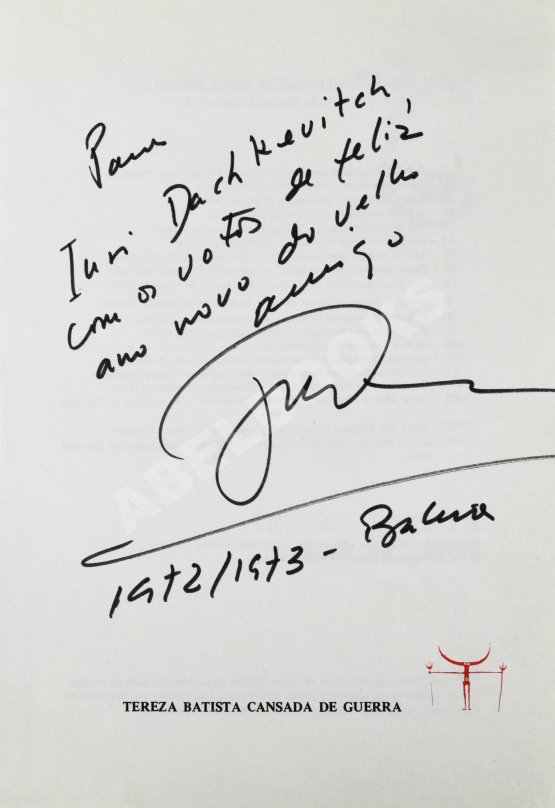 Para
Iuri Dachkevitch
com os votos de feliz
ano novo do velho
amigo
1972/1973 - Bahia
TEREZA BATISTA CANSADA DE GUERRA
ABELBOOKS